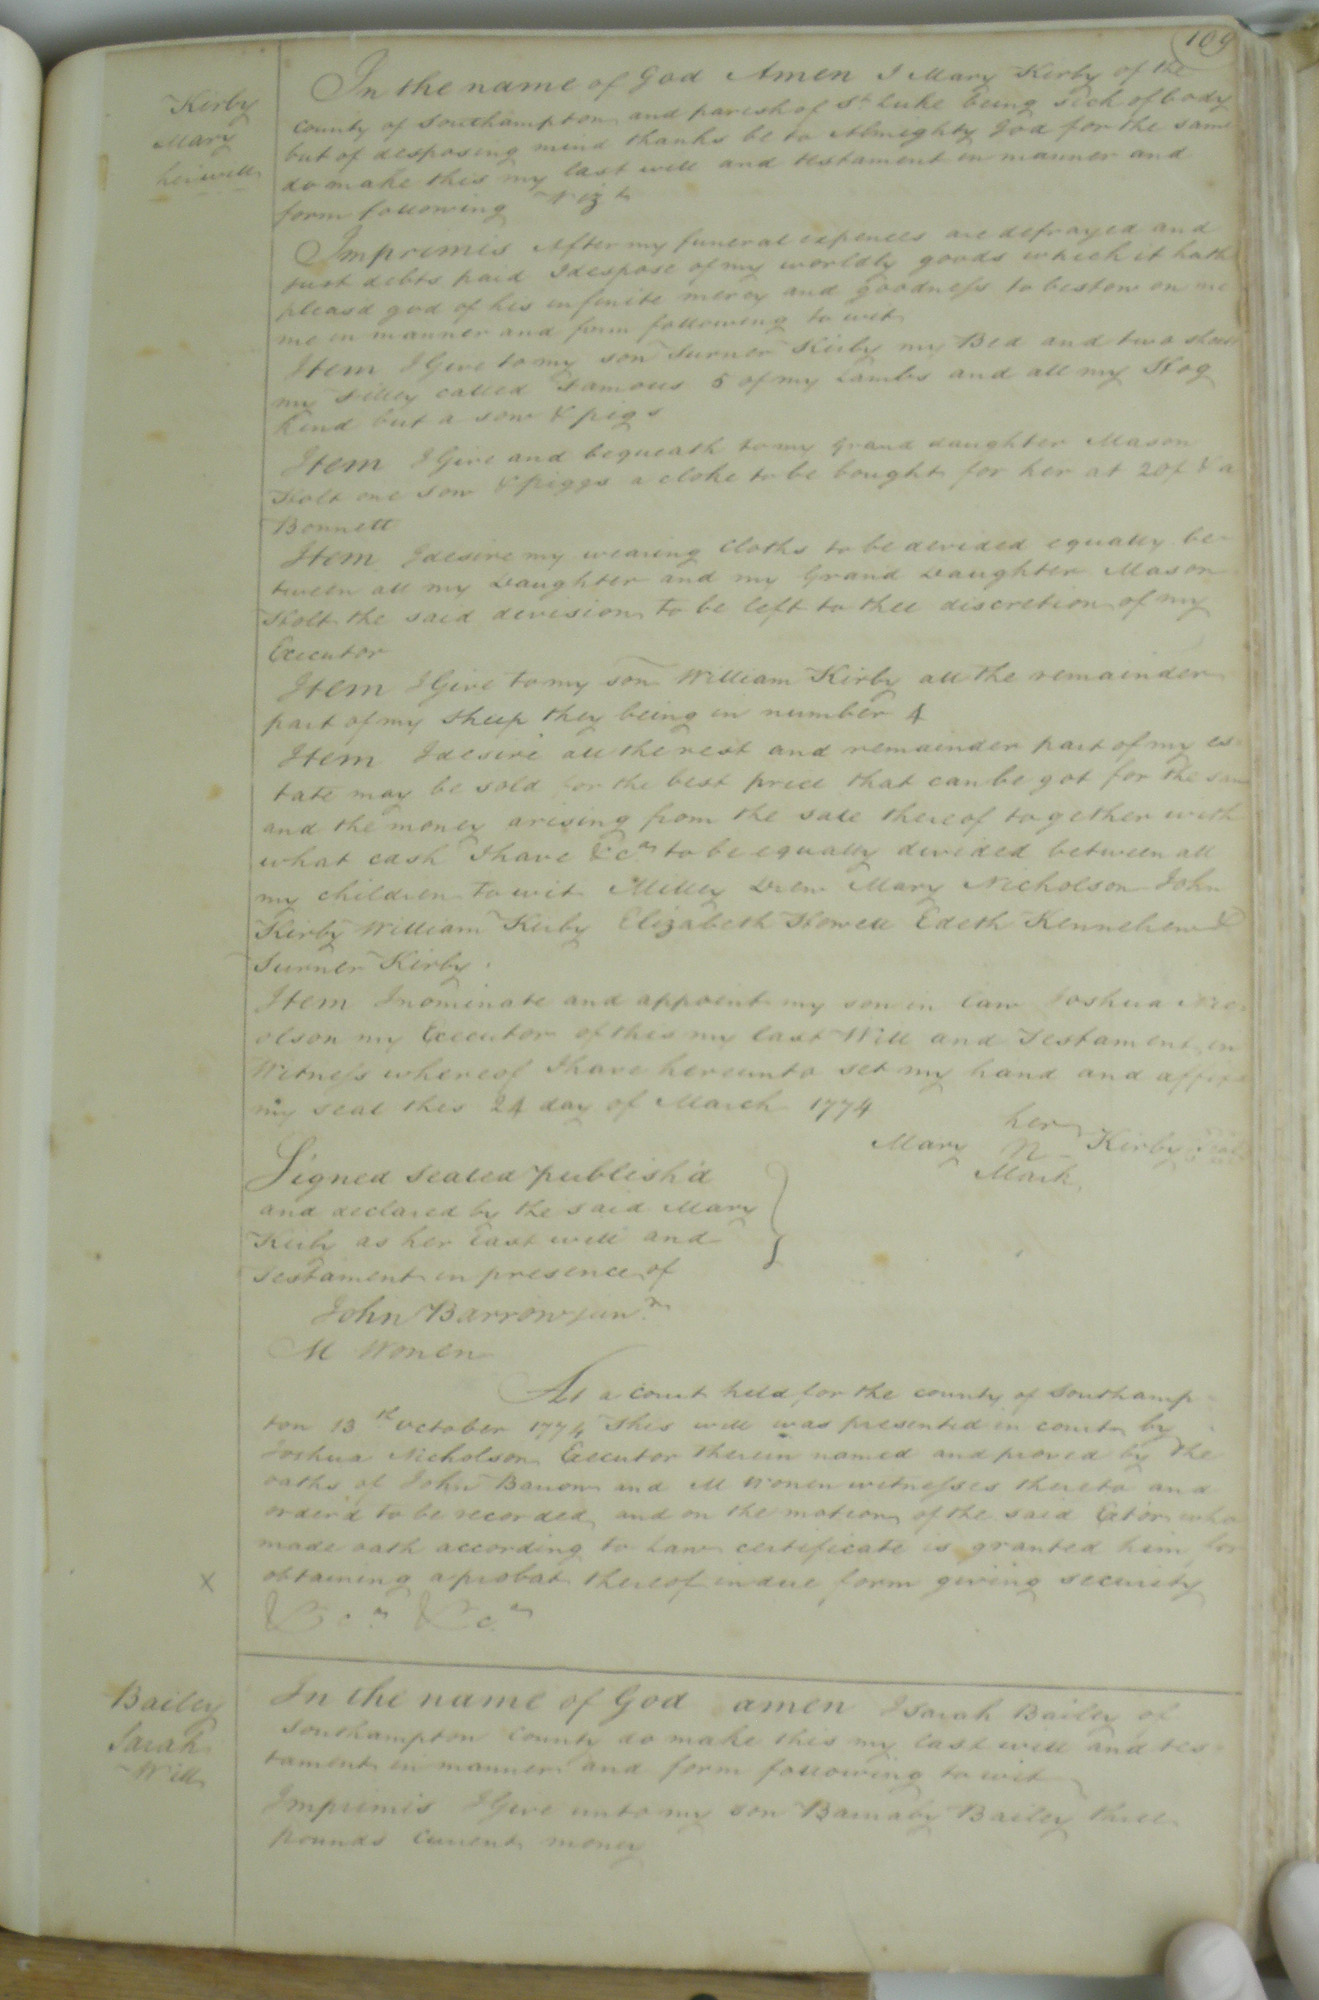 109
Kirby
Mary
her will
In the name of God Amen I Mary Kirby of the
county of Southampton and parish of St. Luke being sick of body
but of desposing mind thanks be to Almighty God for the same
do make this my last will and testament in manner and
form following Vizt
Imprimis After my funeral expences are defrayed and
just debts paid I despose of my worldly goods which it hath
pleasd god of his infinite mercy and goodness to bestow on me
me in manner and form following to wit
Item I Give to my son Turner Kirby my Bed and two
my Filley called Famous 5 of my Lambs and all my Hog
kind but a sow & pigs
Item I Give and bequeath to my Grand daughter Mason
Holt one sow & piggs a cloke to be bought for her at 20/ & a
Bonnett
Item I desire my wearing cloths to be devided equally be-
tween all my Daughter and my Grand Daughter Mason
Holt the said devision to be left to thee discretion of my
Executor
Item I Give to my son William Kirby all the remainder
part of my sheep they being in number 4
Item I desire all the rest and remainder part of my es-
tate may be sold for the best price that can be got for the same
and the money arising from the sale thereof together with
what cash I have &ca to be equally devided between all
my children to wit Milley Drew Mary Nicholson John
Kirby William Kirby Elizabeth Howell Edeth Kennebrew &
Turner Kirby.
Item I nominate and appoint my son in law Joshua Nic-
olson my Executor of this my last Will and Testament in
Witness whereof I have hereunto set my hand and affixd
my seal this 24 day of March 1774
her
Mary N Kirby Seal
Mark
Signed sealed publish'd
and declared by the said Mary
Kirby as her last will and
Testament in presence of
John Barrow junr.
M Wonen
At a court held for the county of Southamp-
ton 13th october 1774 This will was presented in court by
Joshua Nicholson Executor therein named and proved by the
oaths of John Barrow and M Wonen witnesses thereto and
order'd to be recorded and on the motion of the said Exōr who
made oath according to Law certificate is granted him for
obtaining a probat thereof in due form giving security
X
&ca &ca
Bailey
Sarah
Will
In the name of God amen I Sarah Bailey of
Southampton County do make this my last will and tes-
tament in manner and form following to wit
Imprimis I Give unto my son Barnaby Bailey three
pounds current money